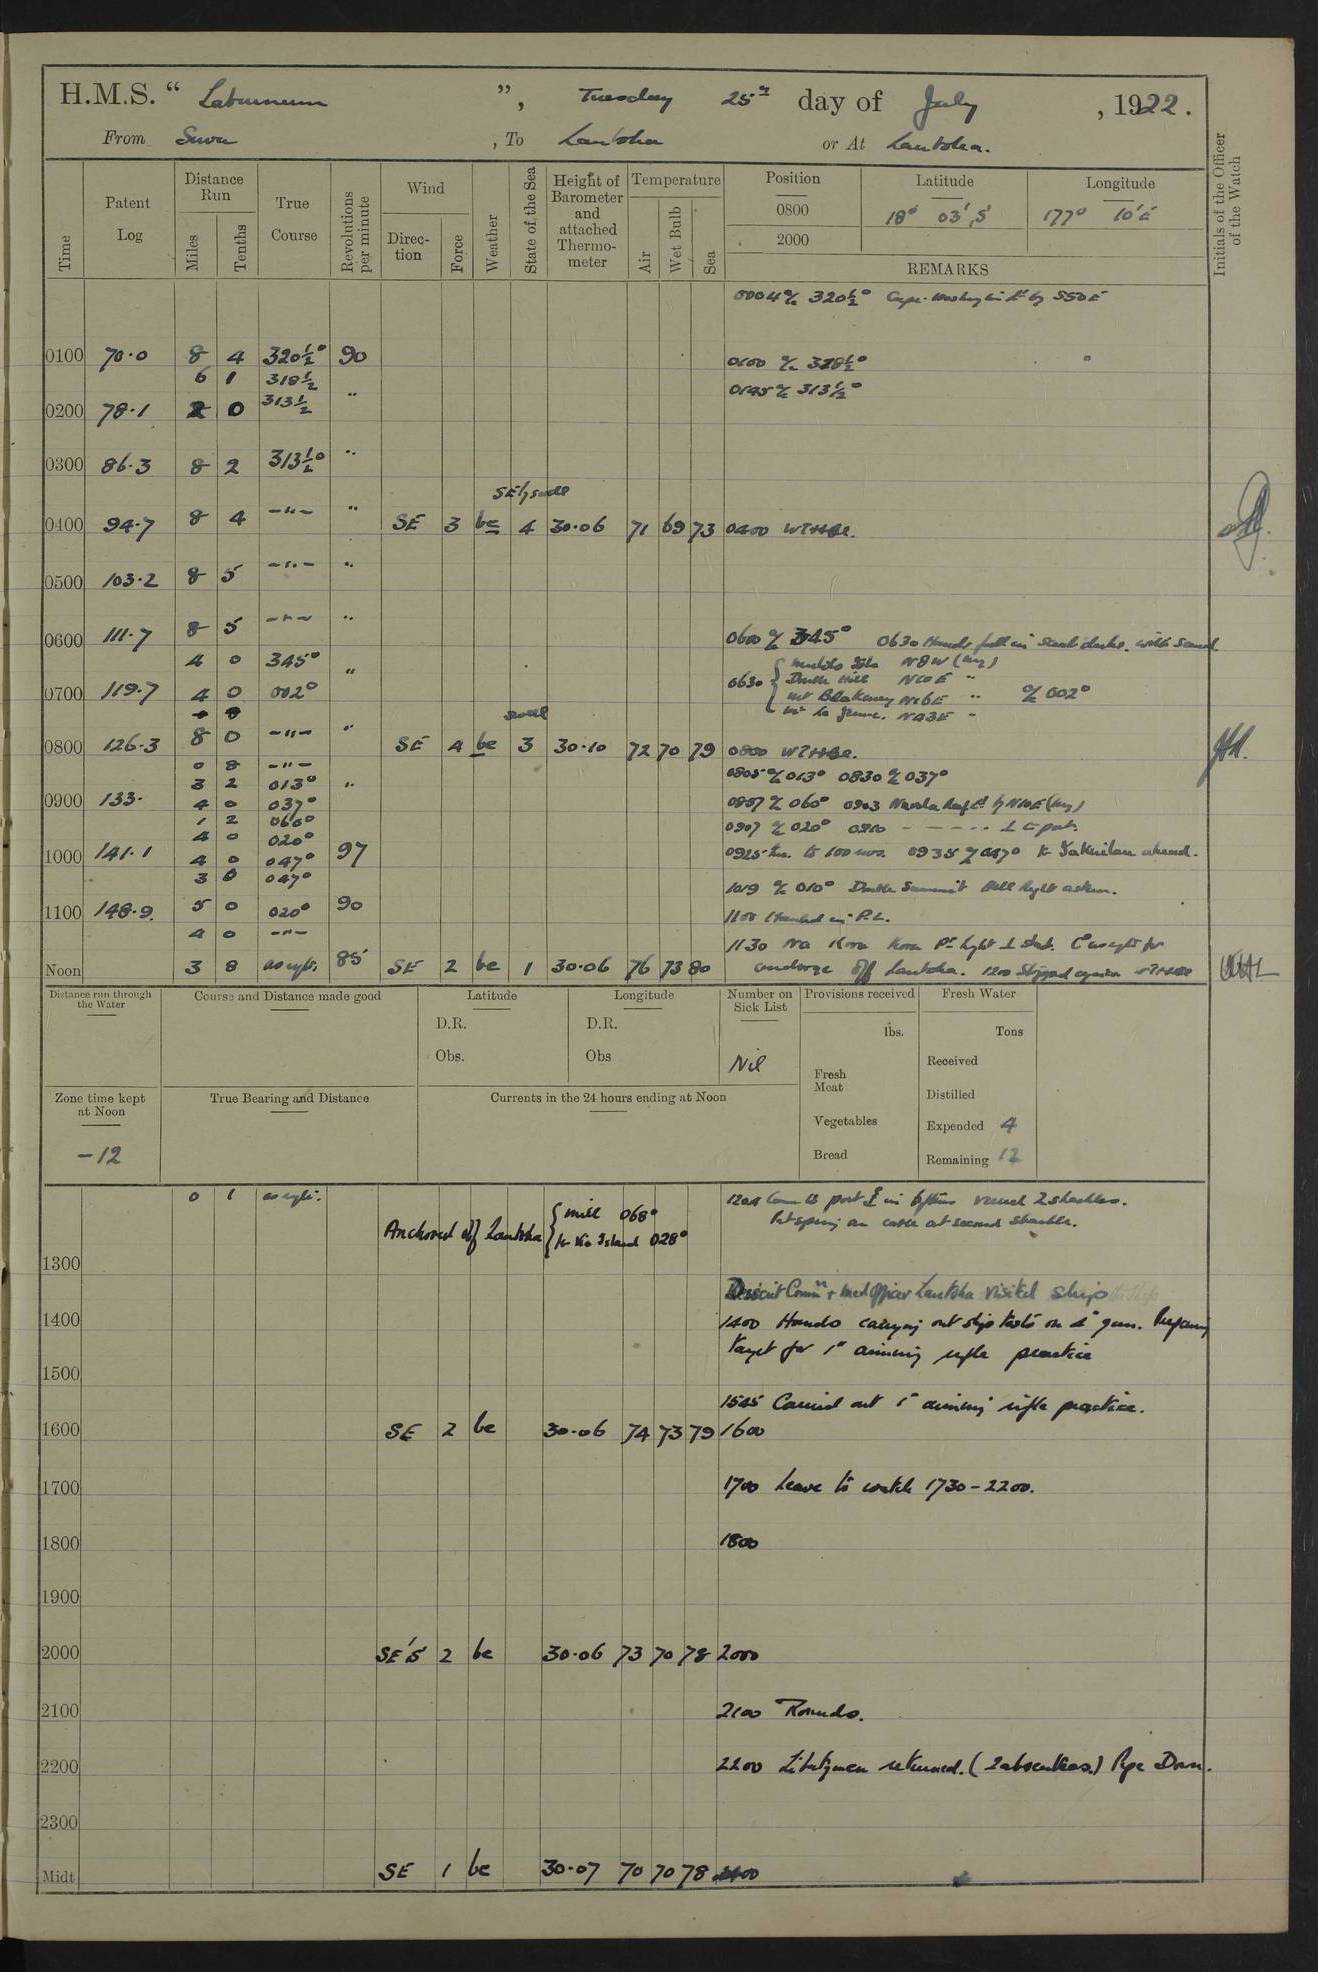 H.M.S. “ Laburnum ”, Tuesday 25th day of July, 1922.
From Suva, To Lautoka or At Lautoka.
Time
Patent Log
Distance Run
Miles
Tenths
True Course
Revolutions per minute
Wind
Direction
Force
Weather
State of the Sea
Height of Barometer and attached Thermometer
Temperature
Air
Wet Bulb
Sea
Position
0800
2000
Latitude
18° 03',5'
Longitude
177° 10'E
REMARKS
Initials of the Officer of the Watch
0004 % 320½° Cape Washington by S50E
0100 70.0 8 4 320½° 90
0100 %
6 1 318½
0145 % 313½°
0200 78.1 2 0 313½ "
0300 86.3 8 2 313½° "
SEly swell
0400 94.7 8 4 -"- " SE 3 bc 4 30.06 71 69 73 0400
0500 103.2 8 5 -"- "
0600 111.7 8 5 -"- "
0600 % 345° 0630 Hands fall in
4 0 345°
N8W (mag)
0630 Double Hill N10E "
0700 119.7 4 0 002° "
Mt Blakeney N16E " % 002°
N43E "
swell
0800 126.3 8 0 -"- " SE 4 bc 3 30.10 72 70 79 0800
0 8 -"-
0805 % 013° 0830 % 037°
3 2 013° "
0900 133. 4 0 037°
0857 % 060° 0903 Navula Reef by N10E (mag)
1 2 060°
0907 % 020° 0910 - - - - ⊥ to port.
4 0 020°
1000 141.1 4 0 047° 97
0925 Inc. to 100 revs. 0935 % 047° ahead.
3 0 047°
1019 % 010° Double Summit Hill light astern.
1100 148.9 5 0 020° 90
1100 Hauled in P.L.
4 0 -"-
1130 Na Kora Kora Pt light ⊥ stbd. Co as reqte for
Noon 3 8 as reqte. 85 SE 2 bc 1 30.06 76 73 80 anchorage off Lautoka. 1200 Stopped
Distance run through the Water
Course and Distance made good
Latitude
D.R.
Obs.
Longitude
D.R.
Obs
Number on Sick List
Nil
Provisions received
lbs.
Fresh Meat
Vegetables
Bread
Fresh Water
Tons
Received
Distilled
Expended 4
Remaining 12
Zone time kept at Noon
-12
True Bearing and Distance
Currents in the 24 hours ending at Noon
0 1 as reqte.
1204 Came to port in 6 fthms veered 2 shackles.
Anchored off Lautoka { Mill 068°
Island 028°
Put spring on cable at second shackle.
1300
District Commr + Med Officer Lautoka visited ship
1400 1400 Hands carrying out ships tests on 4" gun. Preparing
target for 1" aiming rifle practice
1500
1545 Carried out 1" aiming rifle practice.
1600 SE 2 bc 30.06 74 73 79 1600
1700 1700 Leave to watch 1730-2200.
1800 1800
1900
2000 SE'S 2 bc 30.06 73 70 78 2000
2100 2100 Rounds.
2200 2200 Libertymen returned. (2 absentees.) Pipe Down.
2300
Midt SE 1 bc 30.07 70 70 78 2400